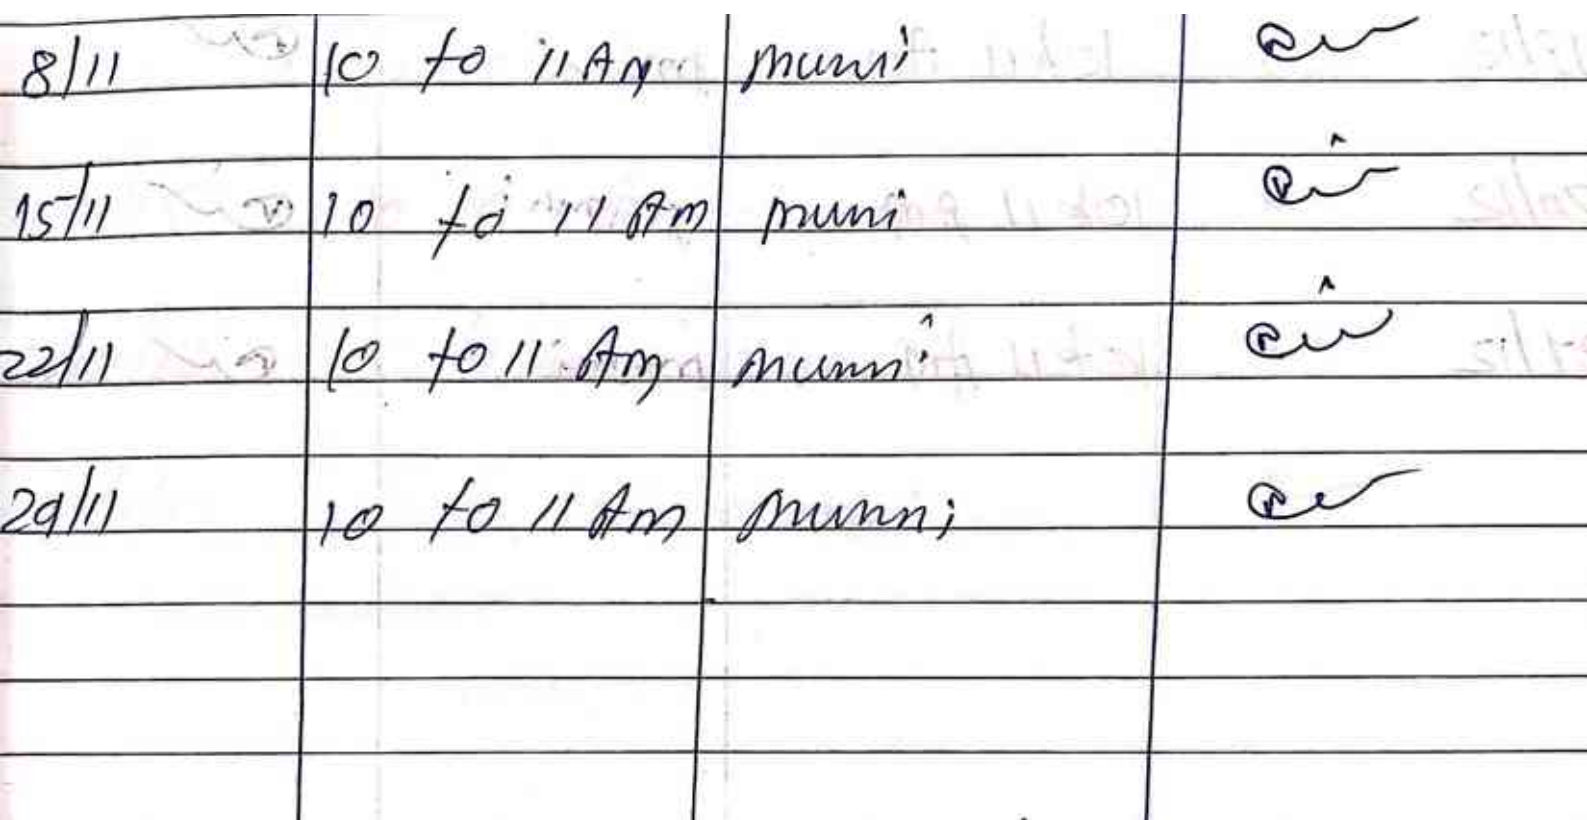 8/11 10 to 11 Am munni
15/11 10 to 11 Am muni
22/11 10 to 11 Am munni
29/11 10 to 11 Am munni